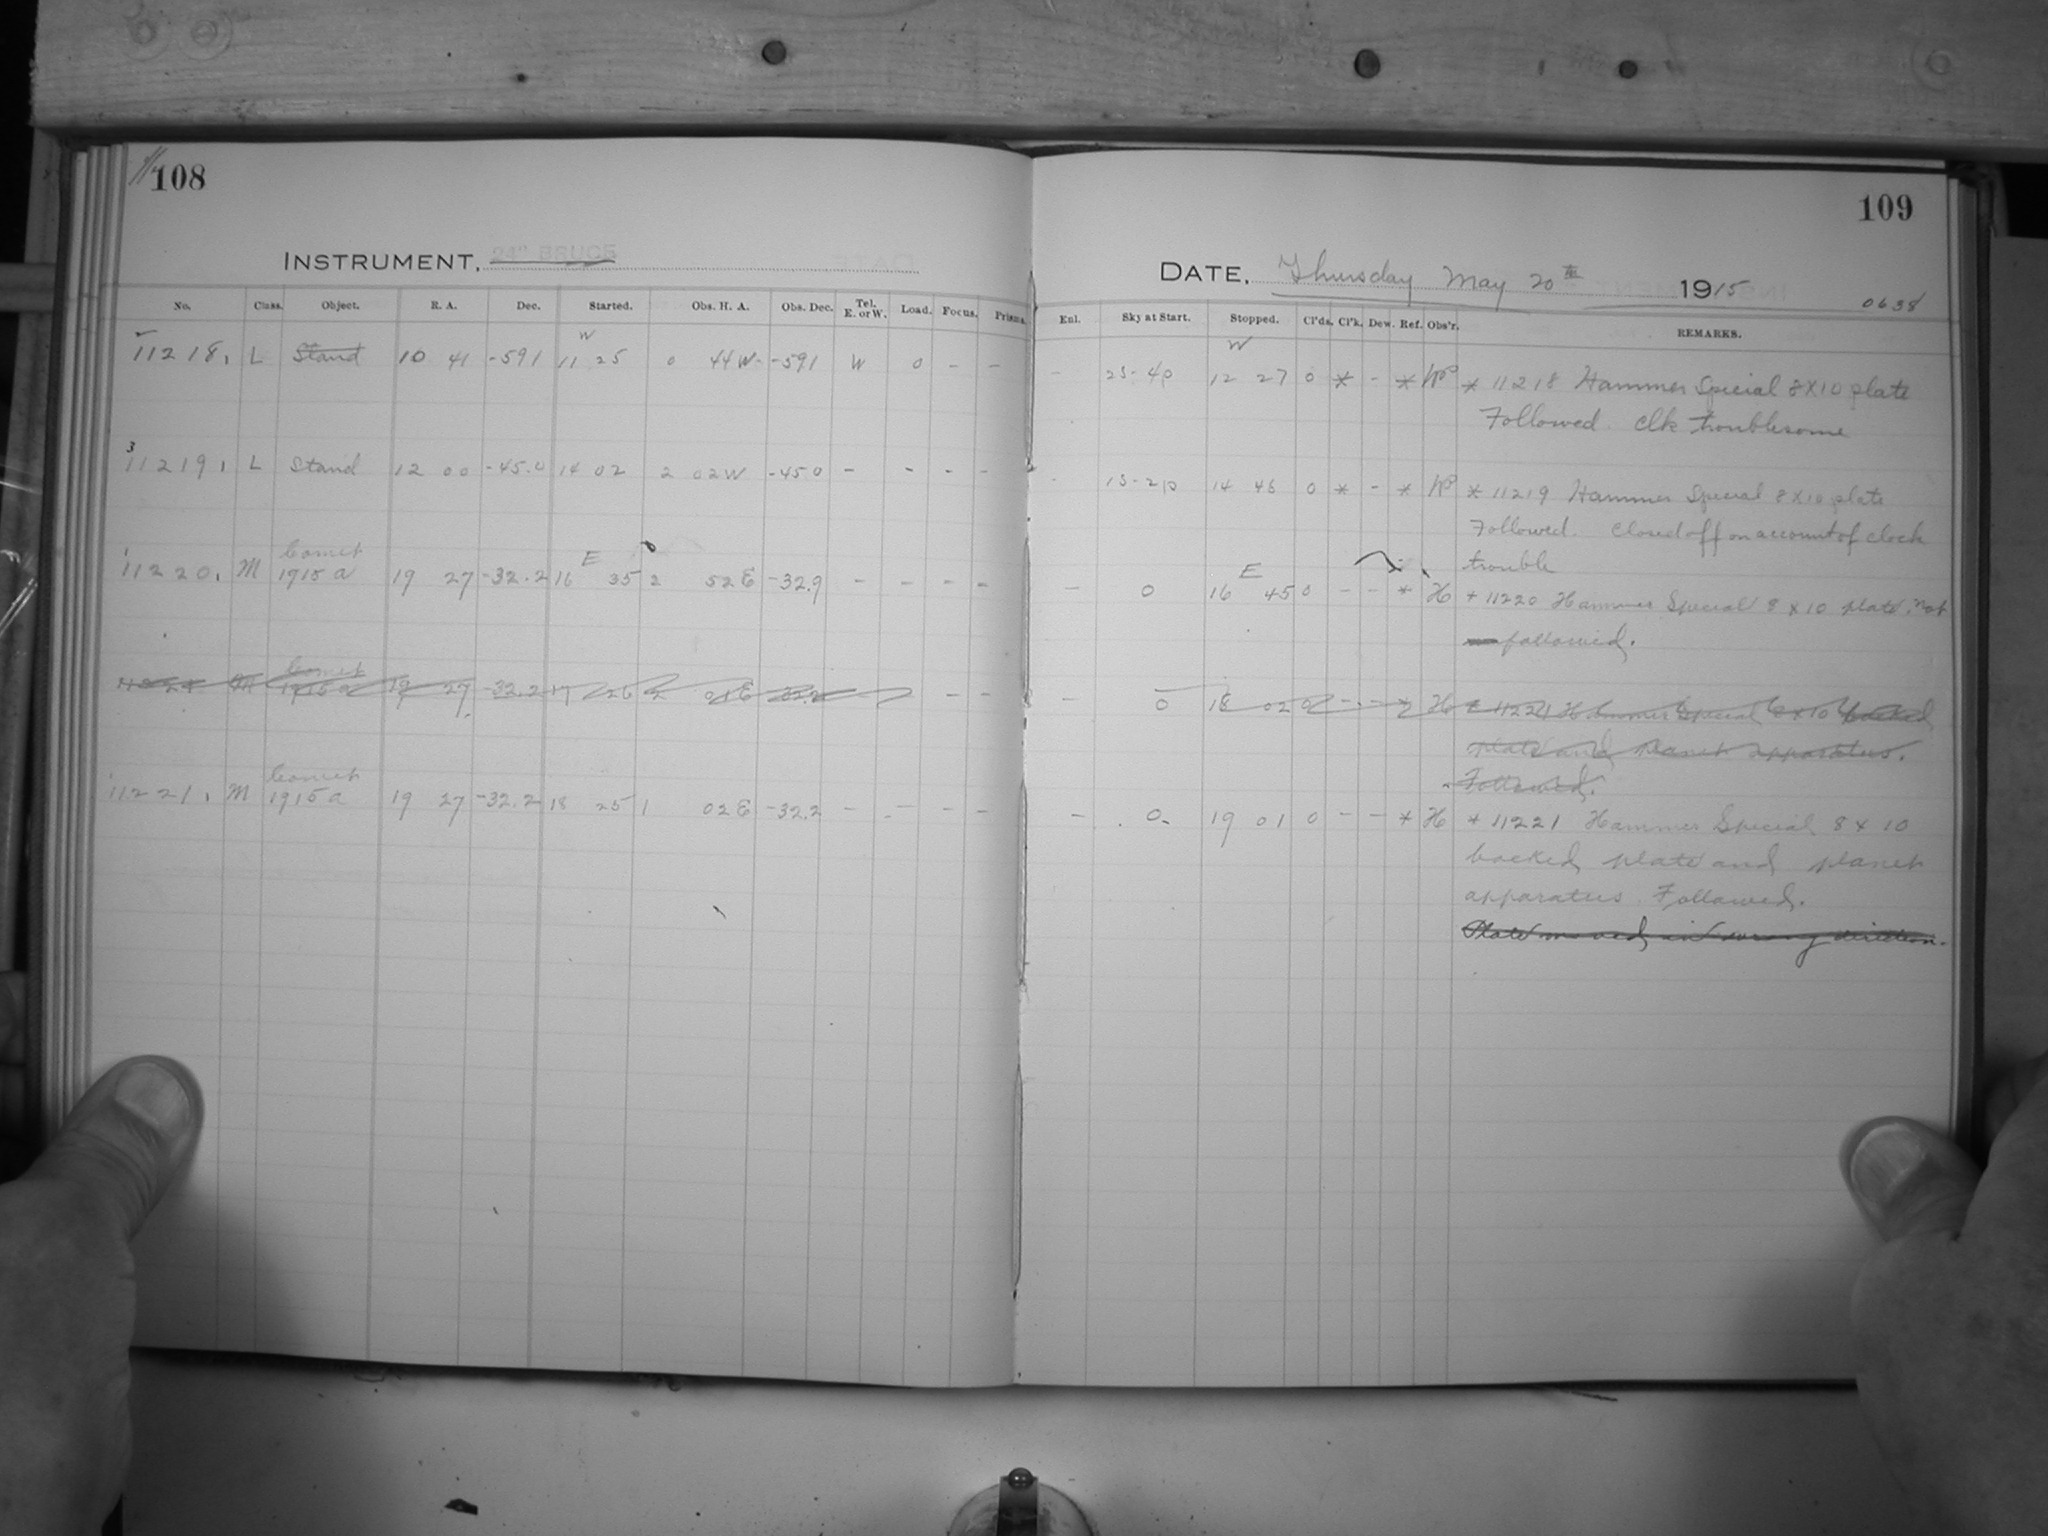 108
INSTRUMENT, 24" BRUCE
No. Class. Object. R. A. Dec. Started. Obs. H. A. Obs. Dec. Tel. E. or W. Load. Focus. Prisms.
W
11218, L Stand 10 41 -591 11 25 0 44 W -591 W 0 - -
3
11219, L Stand 12 00 -45.0 14 02 2 02 W -450 - - - -
Comet E
11220, M 1915 a 19 27 -32.2 16 35 2 52 E -32.9 - - - -
Comet
M 1915 a 19 27 -32.2 17 26 2 01 E -32.2 - -
Comet
11221, M 1915 a 19 27 -32.2 18 25 1 02 E -32.2 - - - -
109
DATE, Thursday May 20th 1915
0638
Enl. Sky at Start. Stopped. Cl'ds. Cl'k. Dew. Ref. Obs'r. REMARKS.
W
- 12 27 0 * - * * 11218 Hammer Special 8X10 plate
Followed. Clk troublesome
- 14 46 0 * - * * 11219 Hammer Special 8X10 plate
Followed. Closed off on account of clock
trouble
E
- 0 16 45 0 - - * H * 11220 Hammer Special 8 x 10 plate. not
followed.
- 0 18 02 0 - - * H * 11221 Hammer Special 8 x 10 backed
plate and planet apparatus.
Followed.
- 0 19 01 0 - - * H * 11221 Hammer Special 8 x 10
backed plate and planet
apparatus. Followed.
Plate moved in wrong direction.